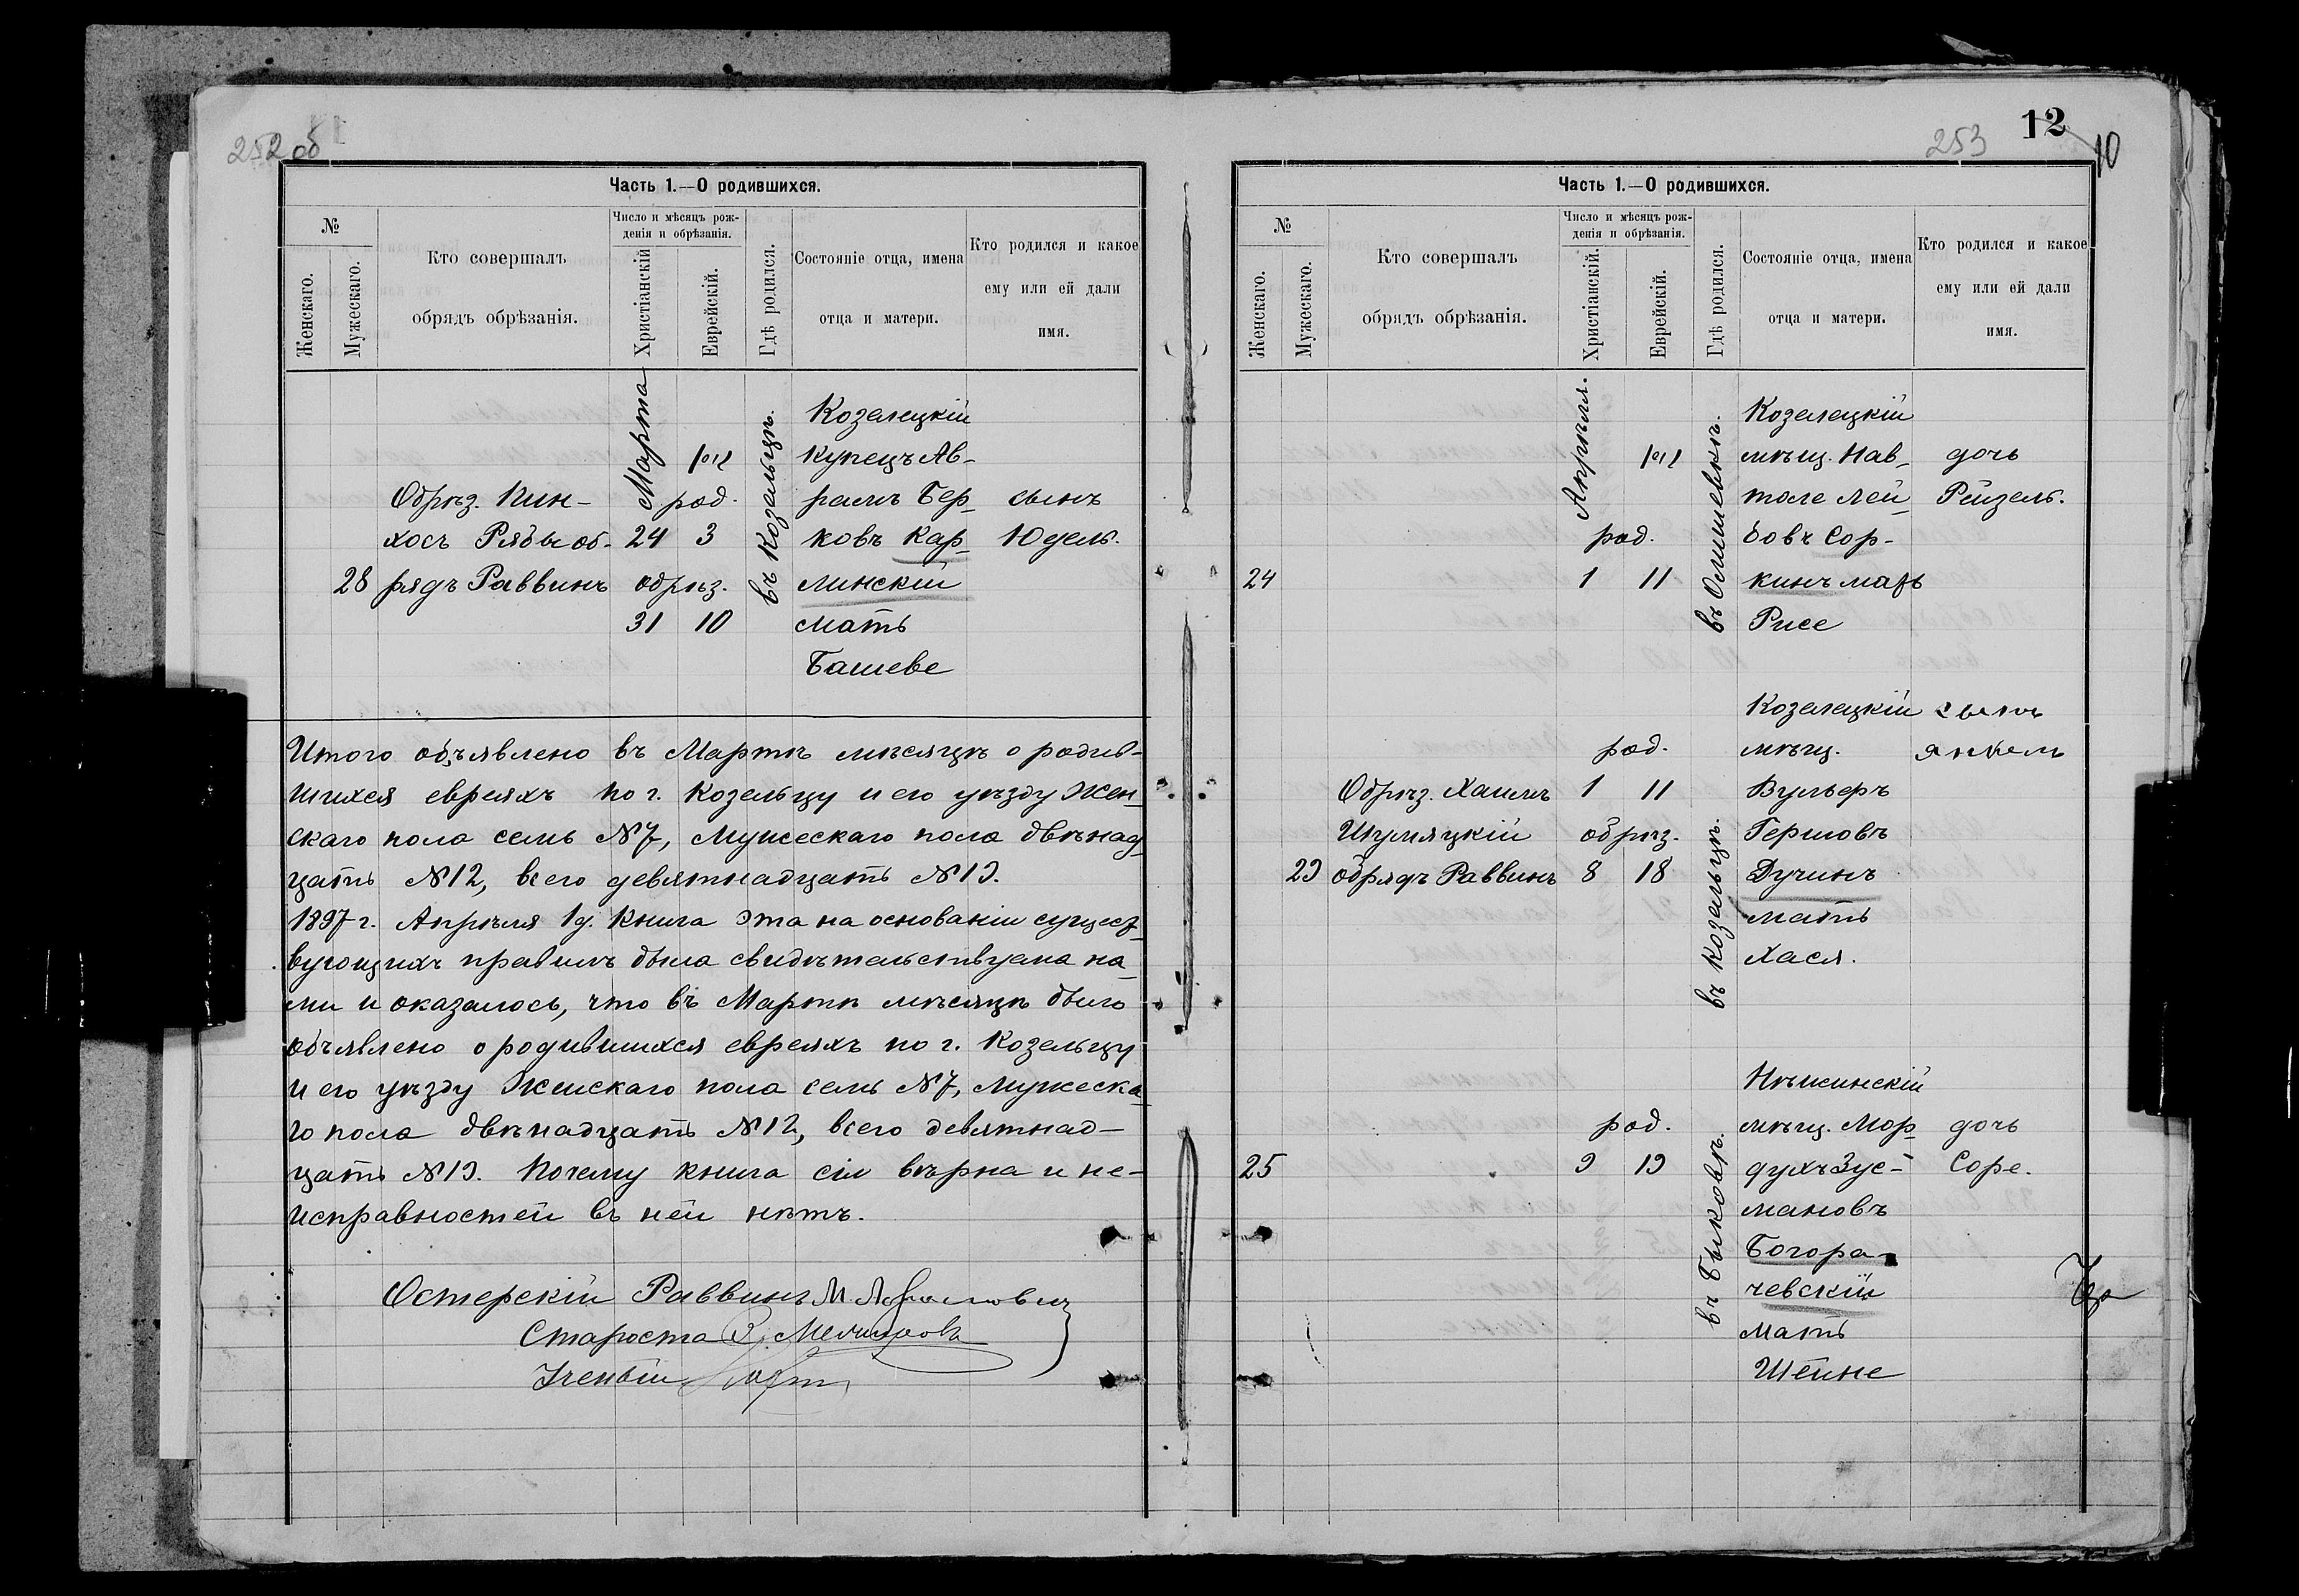 252 об
Часть 1.—О родившихся.
№
Женскаго.
Мужескаго.
Кто совершалъ
обрядъ обрѣзанія.
Число и мѣсяцъ рож-
денія и обрѣзанія.
Христіанскій
Еврейскій.
Гдѣ родился.
Состояніе отца, имена
отца и матери.
Кто родился и какое
ему или ей дали
имя.
28
Обрѣз. Пин-
хосъ Рябы об-
рядъ Раввинъ
Марта
ניסן
род.
24 3
обрѣз.
31 10
въ Козельцѣ.
Козелецкій
купецъ Ав-
рамъ Бер-
ковъ Кар-
линскій
мать
Башеве
сынъ
Юдель.
Итого объявлено въ Мартѣ мѣсяцѣ о родив-
шихся евреяхъ по г. Козельцу и его уѣзду Жен-
скаго пола семь №7, Мужескаго пола двѣнад-
цать №12, всего девятнадцать №19.
1897 г. Апрѣля 1 д. Книга эта на основаніи сущест-
вующихъ правилъ была свидѣтельствуема на-
ми и оказалось, что въ Мартѣ мѣсяцѣ было
объявлено о родившихся евреяхъ по г. Козельцу
и его уѣзду Женскаго пола семь №7, мужеска-
го пола двѣнадцать №12, всего девятнад-
цать №19. Почему книга сія вѣрна и не-
исправностей въ ней нѣтъ.
Остерскій Раввинъ М.
Староста З.
Ученый
253
12
10
Часть 1.—О родившихся.
№
Женскаго.
Мужескаго.
Кто совершалъ
обрядъ обрѣзанія.
Число и мѣсяцъ рож-
денія и обрѣзанія.
Христіанскій.
Еврейскій.
Гдѣ родился.
Состояніе отца, имена
отца и матери.
Кто родился и какое
ему или ей дали
имя.
24
Апрѣля.
ניסן
род.
1 11
въ Олишевкѣ.
Козелецкій
мѣщ. Нав-
толе Лей-
бовъ Сор-
кинъ мать
Рисе
дочь
Рейзель.
29
Обрѣз. Хаимъ
Шумяцкій
обрядъ Раввинъ
род.
1 11
обрѣз.
8 18
въ Козельцѣ.
Козелецкій
мѣщ.
Вульфъ
Гершовъ
Дучинъ
мать
Хася.
сынъ
Янкель
25
род.
9 19
въ Быковѣ.
Нѣжинскій
мѣщ. Мор-
духъ Зус-
мановъ
Богора-
чевскій
мать
Шейне
дочь
Соре.